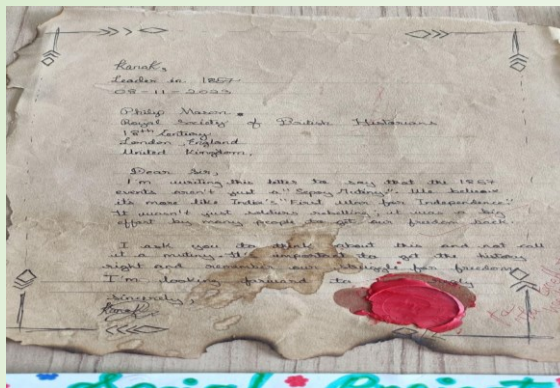 Kanak,
Leader in 1857
08-11-2023
Philip Mason.
Royal Society of British Historians
18th Century,
London, England
United Kingdom.
Dear Sir,
I'm writing this letter to say that the 1857
events aren't just a "Sepoy Mutiny". We believe
it's more like India's "First War for Independence".
It wasn't just soldiers rebelling; it was a big
effort by many people to get our freedom back.
I ask you to think about this and not call
it a mutiny. It's important to get the history
right and remember our struggle for freedom.
I'm looking forward to reply
Sincerely,
Kanak
Social Project